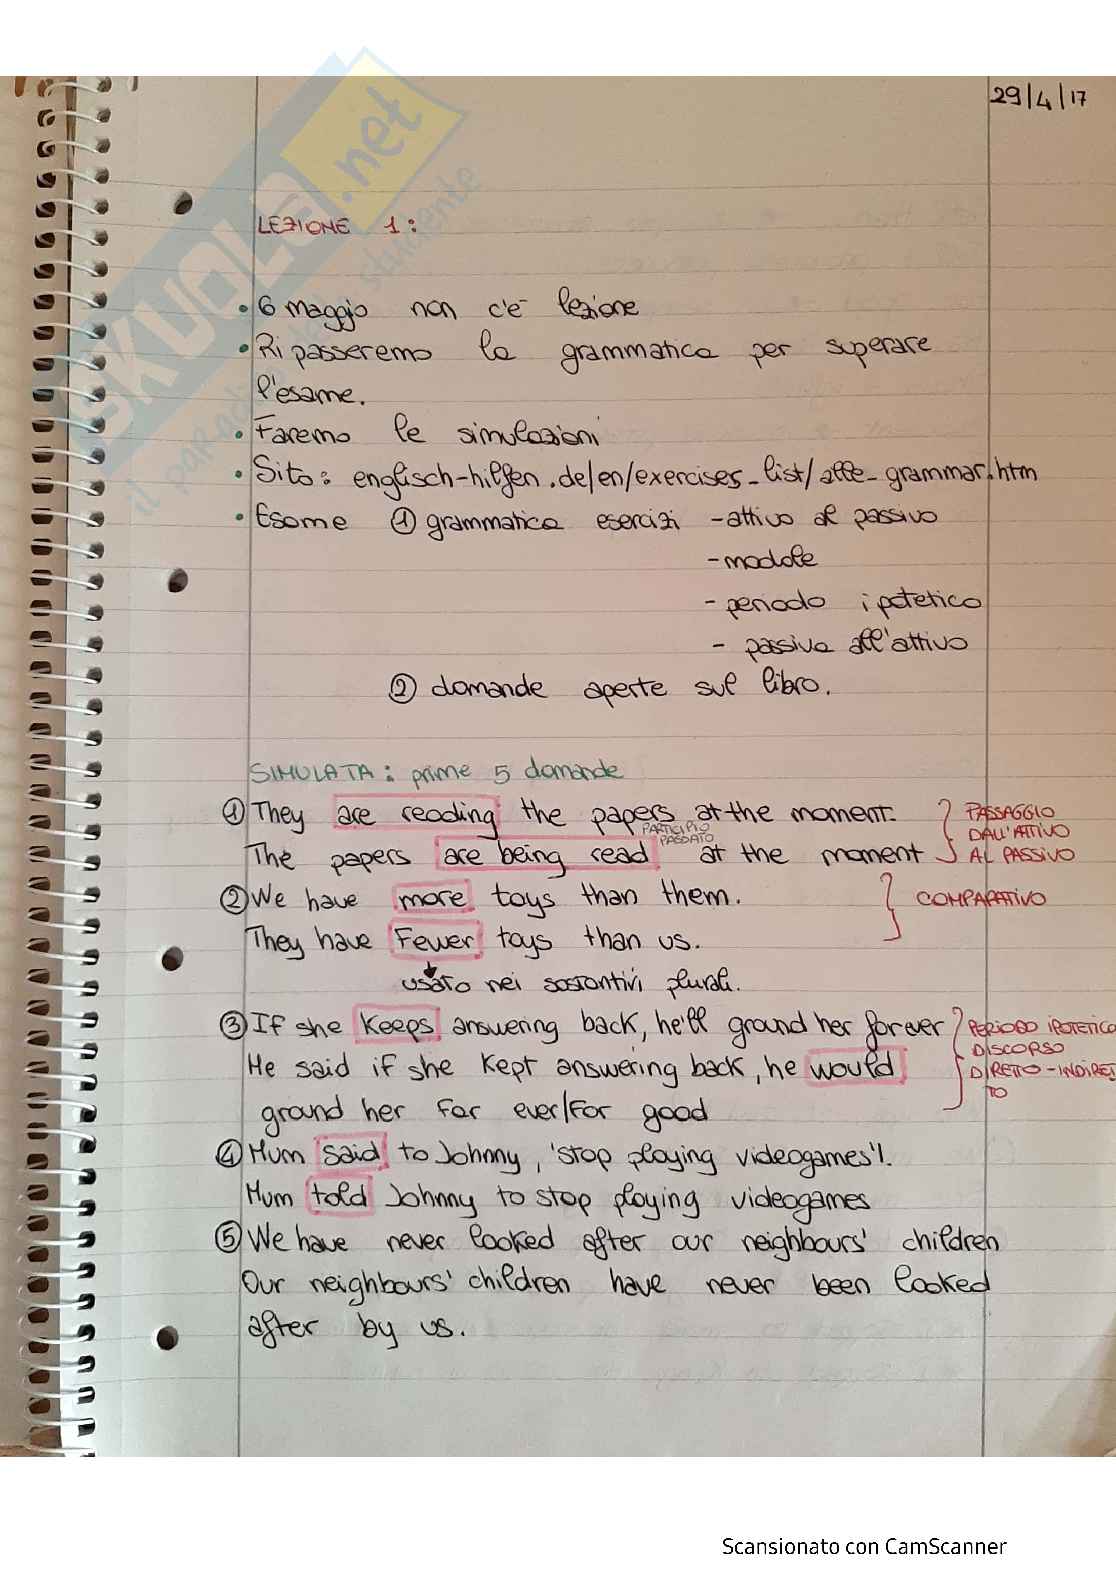 29/4/17
SKUOLA.net
LEZIONE 1:
• 6 maggio non c'è lezione
• Ripasseremo la grammatica per superare
l'esame.
• Faremo le simulazioni
• Sito: englisch-hilfen.de/en/exercises_list/alle_grammar.htm
• Esame ① grammatica esercizi - attivo al passivo
- modale
- periodo ipotetico
- passivo all'attivo
② domande aperte sul libro.
SIMULATA: prime 5 domande
① They are reading the papers at the moment.
PARTICIPIO PASSATO
The papers are being read at the moment
PASSAGGIO
DALL'ATTIVO
AL PASSIVO
② We have more toys than them.
They have Fewer toys than us.
COMPARATIVO
usato nei sostantivi plurali.
③ If she keeps answering back, he'll ground her for ever
He said if she kept answering back, he would
ground her for ever/for good
PERIODO IPOTETICO
DISCORSO
DIRETTO-INDIRET
TO
④ Mum said to Johnny, 'stop playing videogames'!.
Mum told Johnny to stop playing videogames
⑤ We have never looked after our neighbours' children
Our neighbours' children have never been looked
after by us.
Scansionato con CamScanner